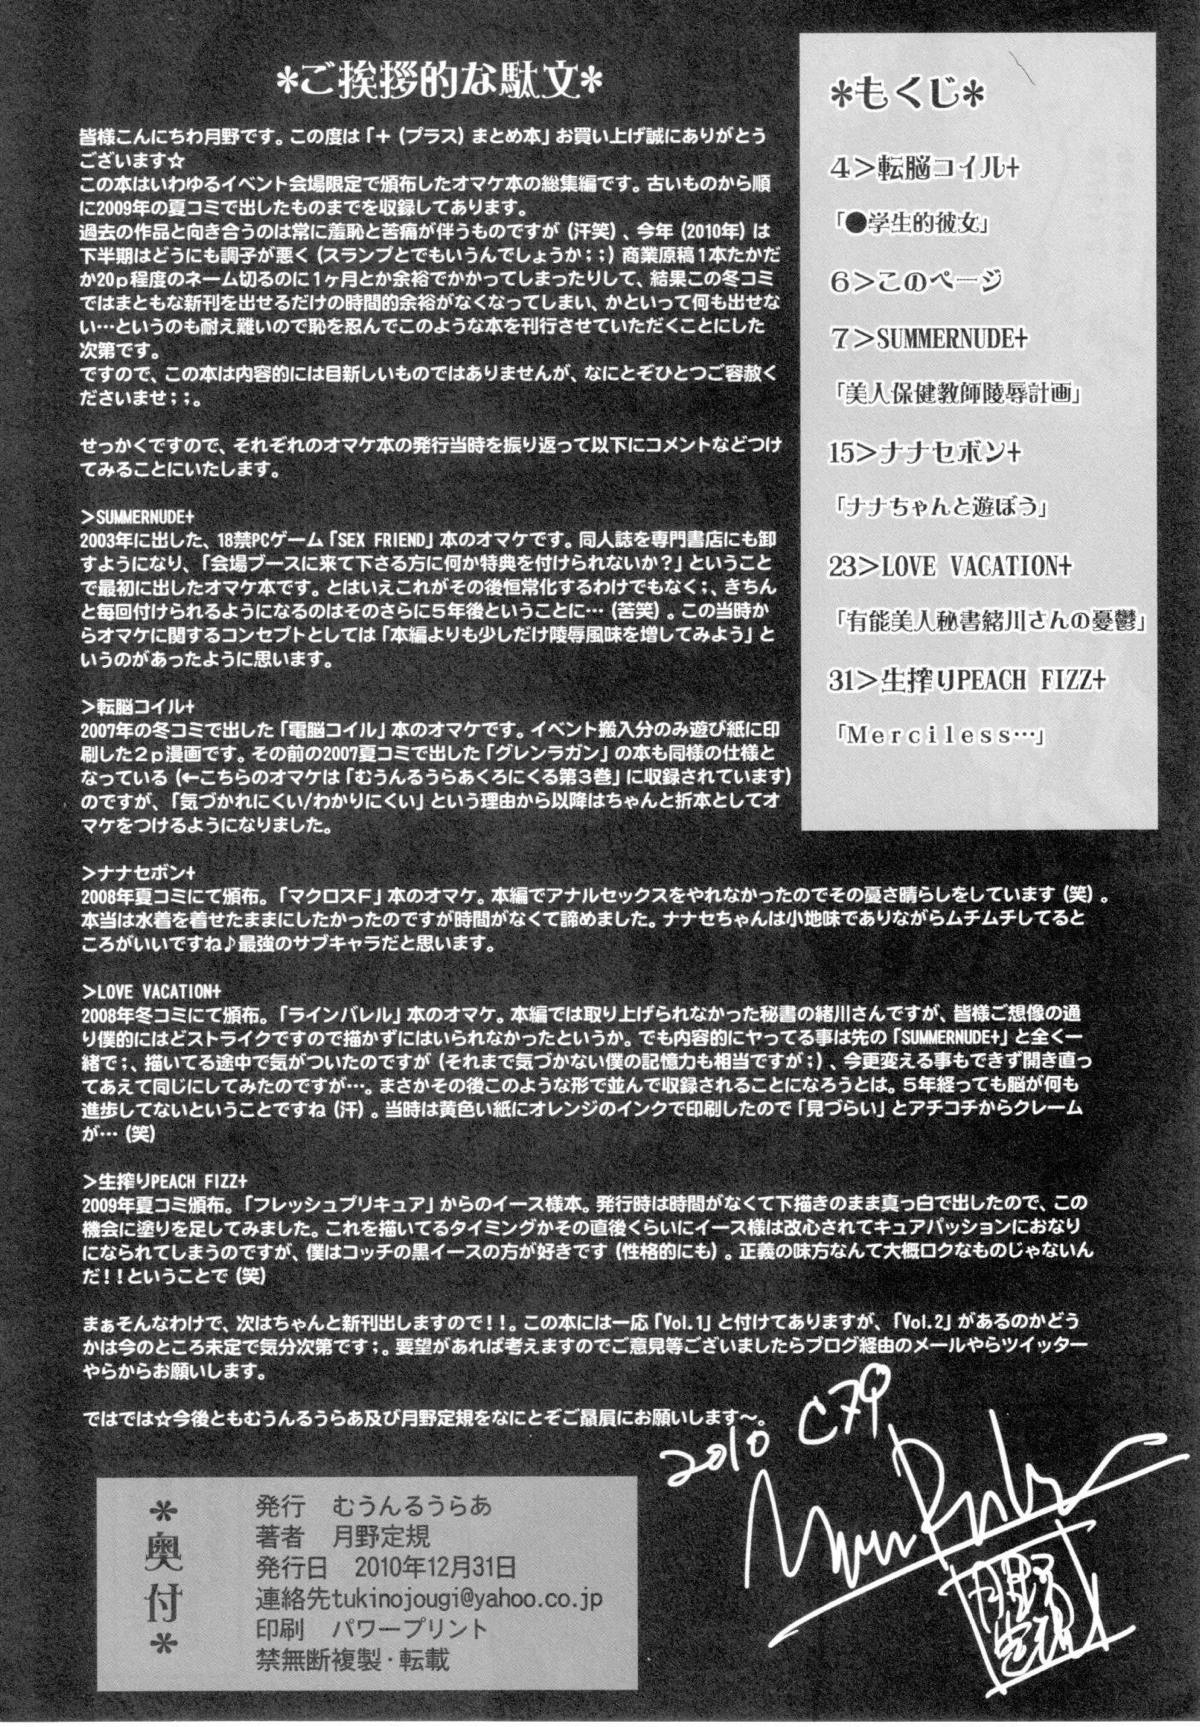 *ご挨拶的な駄文*
皆様こんにちわ月野です。この度は「+(プラス)まとめ本」お買い上げ誠にありがとう
ございます☆
この本はいわゆるイベント会場限定で頒布したオマケ本の総集編です。古いものから順
に2009年の夏コミで出したものまでを収録してあります。
過去の作品と向き合うのは常に羞恥と苦痛が伴うものですが(汗笑)、今年(2010年)は
下半期はどうにも調子が悪く(スランプとでもいうんでしょうか;;)商業原稿1本たかだ
か20p程度のネーム切るのに1ヶ月とか余裕でかかってしまったりして、結果この冬コミ
ではまともな新刊を出せるだけの時間的余裕がなくなってしまい、かといって何も出せな
い…というのも耐え難いので恥を忍んでこのような本を刊行させていただくことにした
次第です。
ですので、この本は内容的には目新しいものではありませんが、なにとぞひとつご容赦く
ださいませ;;。
せっかくですので、それぞれのオマケ本の発行当時を振り返って以下にコメントなどつけ
てみることにいたします。
>SUMMERNUDE+
2003年に出した、18禁PCゲーム「SEX FRIEND」本のオマケです。同人誌を専門書店にも卸
すようになり、「会場ブースに来て下さる方に何か特典を付けられないか?」ということ
で最初に出したオマケ本です。とはいえこれがその後恒常化するわけでもなく;、きちん
と毎回付けられるようになるのはそのさらに5年後ということに…(苦笑)。この当時か
らオマケに関するコンセプトとしては「本編よりも少しだけ陵辱風味を増してみよう」と
いうのがあったように思います。
>転脳コイル+
2007年の冬コミで出した「電脳コイル」本のオマケです。イベント搬入分のみ遊び紙に印
刷した2p漫画です。その前の2007夏コミで出した「グレンラガン」の本も同様の仕様と
なっている(←こちらのオマケは「むうんるうらあくろにくる第3巻」に収録されています)
のですが、「気づかれにくい/わかりにくい」という理由から以降はちゃんと折本としてオ
マケをつけるようになりました。
>ナナセボン+
2008年夏コミにて頒布。「マクロスF」本のオマケ。本編でアナルセックスをやれなかったのでその憂さ晴らしをしています(笑)。
本当は水着を着せたままにしたかったのですが時間がなくて諦めました。ナナセちゃんは小地味でありながらムチムチしてると
ころがいいですね♪最強のサブキャラだと思います。
>LOVE VACATION+
2008年冬コミにて頒布。「ラインバレル」本のオマケ。本編では取り上げられなかった秘書の緒川さんですが、皆様ご想像の通
り僕的にはどストライクですので描かずにはいられなかったというか。でも内容的にヤッてる事は先の「SUMMERNUDE+」と全く一
緒で;、描いてる途中で気がついたのですが(それまで気づかない僕の記憶力も相当ですが;)、今更変える事もできず開き直っ
てあえて同じにしてみたのですが…。まさかその後このような形で並んで収録されることになろうとは。5年経っても脳が何も
進歩してないということですね(汗)。当時は黄色い紙にオレンジのインクで印刷したので「見づらい」とアチコチからクレーム
が…(笑)
>生搾りPEACH FIZZ+
2009年夏コミ頒布。「フレッシュプリキュア」からのイース様本。発行時は時間がなくて下描きのまま真っ白で出したので、この
機会に塗りを足してみました。これを描いてるタイミングかその直後くらいにイース様は改心されてキュアパッションにおなり
になられてしまうのですが、僕はコッチの黒イースの方が好きです(性格的にも)。正義の味方なんて大概ロクなものじゃないん
だ!!ということで(笑)
まぁそんなわけで、次はちゃんと新刊出しますので!!。この本には一応「Vol.1」と付けてありますが、「Vol.2」があるのかどう
かは今のところ未定で気分次第です;。要望があれば考えますのでご意見等ございましたらブログ経由のメールやらツイッター
やらからお願いします。
ではでは☆今後ともむうんるうらあ及び月野定規をなにとぞご贔屓にお願いします〜。
*もくじ*
4>転脳コイル+
「●学生的彼女」
6>このページ
7>SUMMERNUDE+
「美人保健教師陵辱計画」
15>ナナセボン+
「ナナちゃんと遊ぼう」
23>LOVE VACATION+
「有能美人秘書緒川さんの憂鬱」
31>生搾りPEACH FIZZ+
「Merciless…」
2010 C79
月野定規
*奥付*
発行 むうんるうらあ
著者 月野定規
発行日 2010年12月31日
連絡先tukinojougi@yahoo.co.jp
印刷 パワープリント
禁無断複製・転載